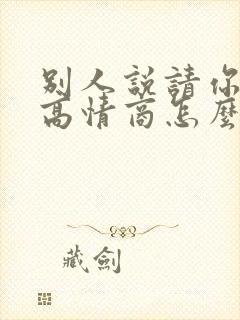 別人說請你
高情商怎麼
藏劍